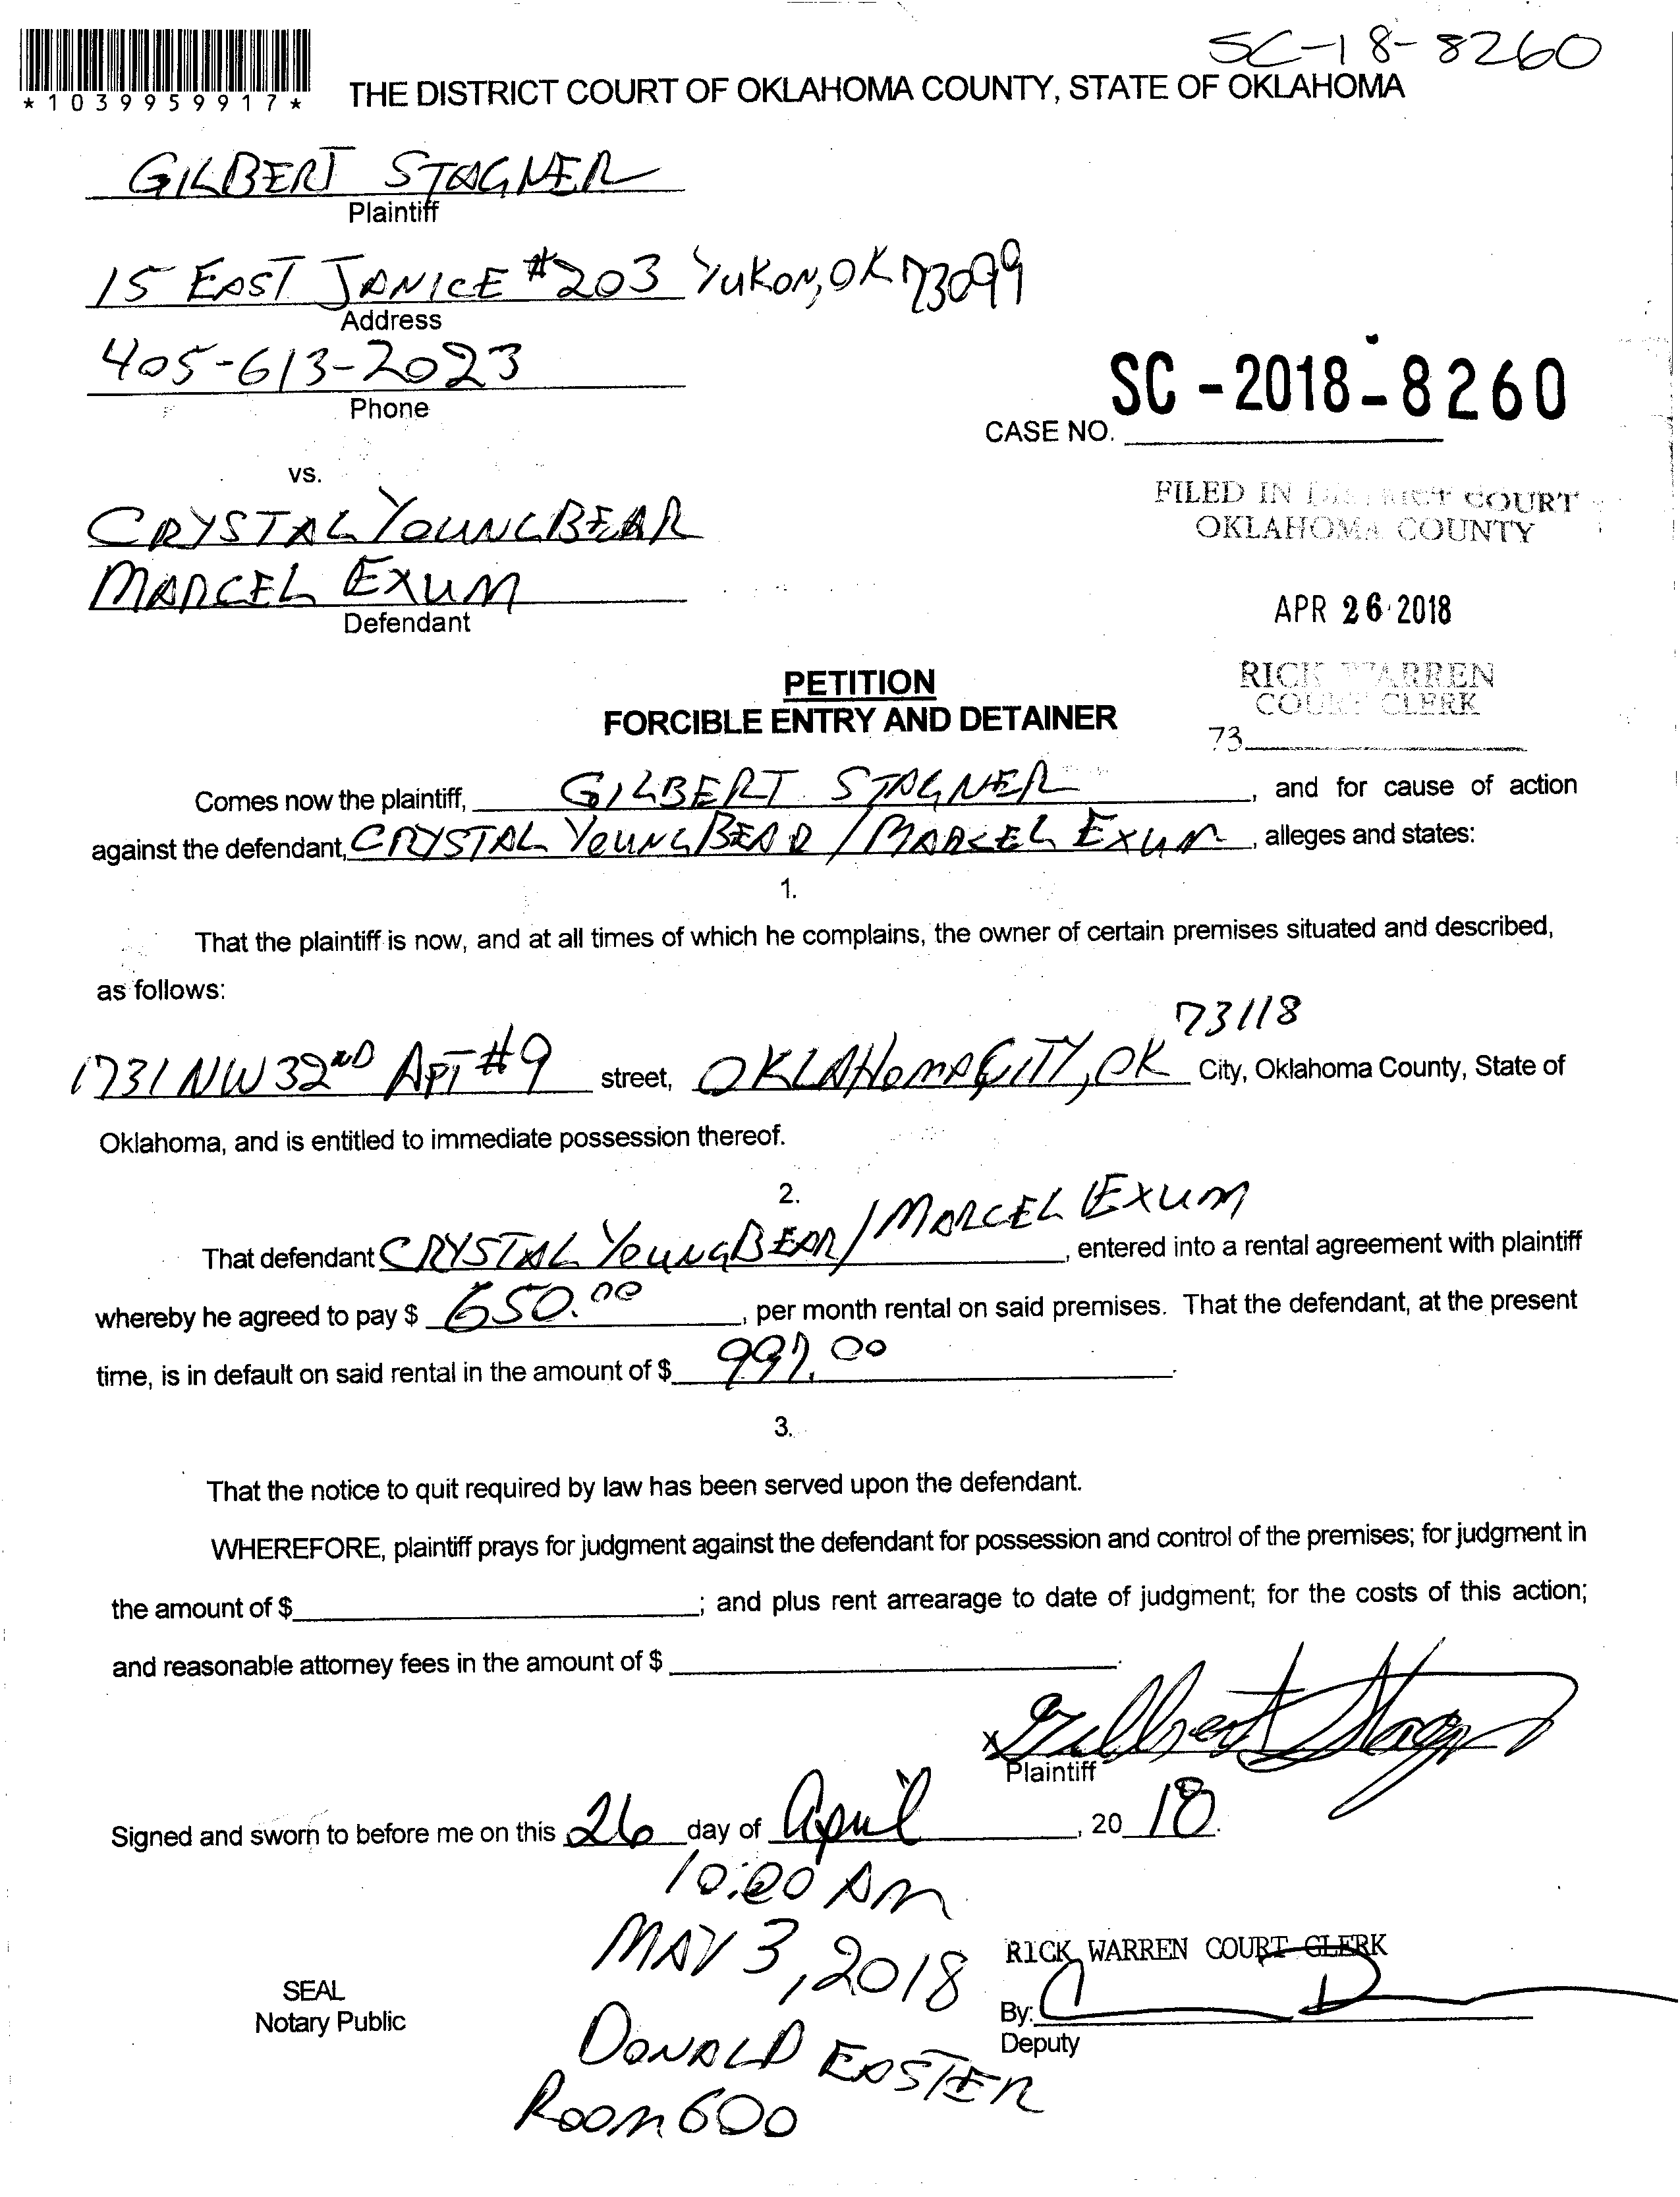 SC-18-8260
*1039959917*
THE DISTRICT COURT OF OKLAHOMA COUNTY, STATE OF OKLAHOMA
GILBERT STAGNER
Plaintiff
15 EAST JANICE #203 YUKON, OK 73099
Address
405-613-2023
Phone
SC-2018-8260
CASE NO.
vs.
FILED IN DISTRICT COURT
OKLAHOMA COUNTY
CRYSTAL YOUNGBEAR
MARCEL EXUM
Defendant
APR 26 2018
RICK WARREN
COURT CLERK
73
PETITION
FORCIBLE ENTRY AND DETAINER
Comes now the plaintiff, GILBERT STAGNER, and for cause of action
against the defendant, CRYSTAL YOUNGBEAR / MARCEL EXUM, alleges and states:
1.
That the plaintiff is now, and at all times of which he complains, the owner of certain premises situated and described,
as follows:
73118
1731 NW 32ND APT #9 street, OKLAHOMA CITY, OK City, Oklahoma County, State of
Oklahoma, and is entitled to immediate possession thereof.
2.
That defendant CRYSTAL YOUNGBEAR / MARCEL EXUM, entered into a rental agreement with plaintiff
whereby he agreed to pay $ 650.00, per month rental on said premises. That the defendant, at the present
time, is in default on said rental in the amount of $ 997.00.
3.
That the notice to quit required by law has been served upon the defendant.
WHEREFORE, plaintiff prays for judgment against the defendant for possession and control of the premises; for judgment in
the amount of $; and plus rent arrearage to date of judgment; for the costs of this action;
and reasonable attorney fees in the amount of $.
X Gilbert Stagner
Plaintiff
Signed and sworn to before me on this 26 day of April, 20 18.
10:00 AM
MAY 3, 2018
DONALD EASTER
ROOM 600
SEAL
Notary Public
RICK WARREN COURT CLERK
By:
Deputy